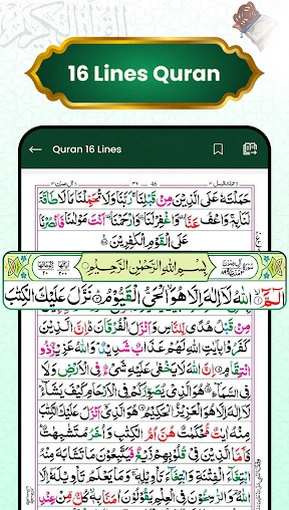 16 Lines Quran
Quran 16 Lines
حَمَلْتَهٗ عَلَى الَّذِيْنَ مِنْ قَبْلِنَا رَبَّنَا وَلَا تُحَمِّلْنَا مَا لَا طَاقَةَ
لَنَا بِهٖ وَاعْفُ عَنَّا وَاغْفِرْ لَنَا وَارْحَمْنَا اَنْتَ مَوْلٰىنَا فَانْصُرْنَا
عَلَى الْقَوْمِ الْكٰفِرِيْنَ
بِسْمِ اللّٰهِ الرَّحْمٰنِ الرَّحِيْمِ
الٓمَّٓ اللّٰهُ لَآ اِلٰهَ اِلَّا هُوَ الْحَىُّ الْقَيُّوْمُ نَزَّلَ عَلَيْكَ الْكِتٰبَ
مِنْ قَبْلُ هُدًى لِّلنَّاسِ وَاَنْزَلَ الْفُرْقَانَ اِنَّ الَّذِيْنَ
كَفَرُوْا بِاٰيٰتِ اللّٰهِ لَهُمْ عَذَابٌ شَدِيْدٌ وَاللّٰهُ عَزِيْزٌ ذُو
انْتِقَامٍ اِنَّ اللّٰهَ لَا يَخْفٰى عَلَيْهِ شَىْءٌ فِى الْاَرْضِ وَلَا
فِى السَّمَآءِ هُوَ الَّذِيْ يُصَوِّرُكُمْ فِى الْاَرْحَامِ كَيْفَ يَشَآءُ
لَآ اِلٰهَ اِلَّا هُوَ الْعَزِيْزُ الْحَكِيْمُ هُوَ الَّذِيْٓ اَنْزَلَ عَلَيْكَ الْكِتٰبَ
مِنْهُ اٰيٰتٌ مُّحْكَمٰتٌ هُنَّ اُمُّ الْكِتٰبِ وَاُخَرُ مُتَشٰبِهٰتٌ
فَاَمَّا الَّذِيْنَ فِيْ قُلُوْبِهِمْ زَيْغٌ فَيَتَّبِعُوْنَ مَا تَشَابَهَ مِنْهُ
ابْتِغَآءَ الْفِتْنَةِ وَابْتِغَآءَ تَاْوِيْلِهٖ وَمَا يَعْلَمُ تَاْوِيْلَهٗٓ اِلَّا
اللّٰهُ وَالرّٰسِخُوْنَ فِى الْعِلْمِ يَقُوْلُوْنَ اٰمَنَّا بِهٖ كُلٌّ مِّنْ عِنْدِ